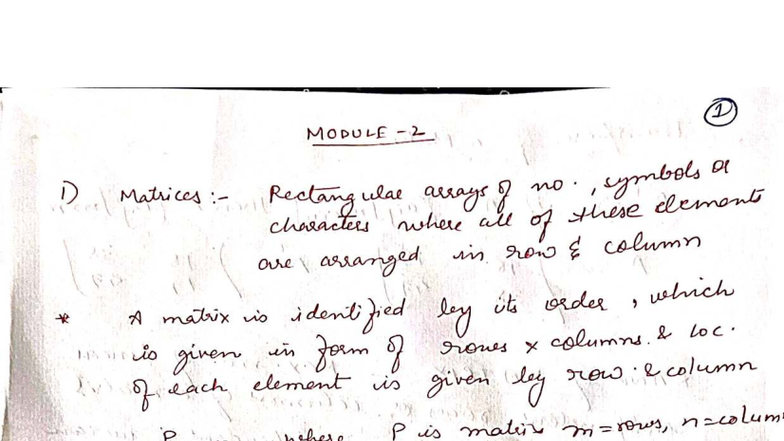 1
MODULE - 2
1) Matrices :- Rectangular arrays of no., symbols or
characters where all of these elements
are arranged in row & column
* A matrix is identified by its order, which
is given in form of rows x columns. & loc.
of each element is given by row & column
P where P is matrix m=rows, n=colum